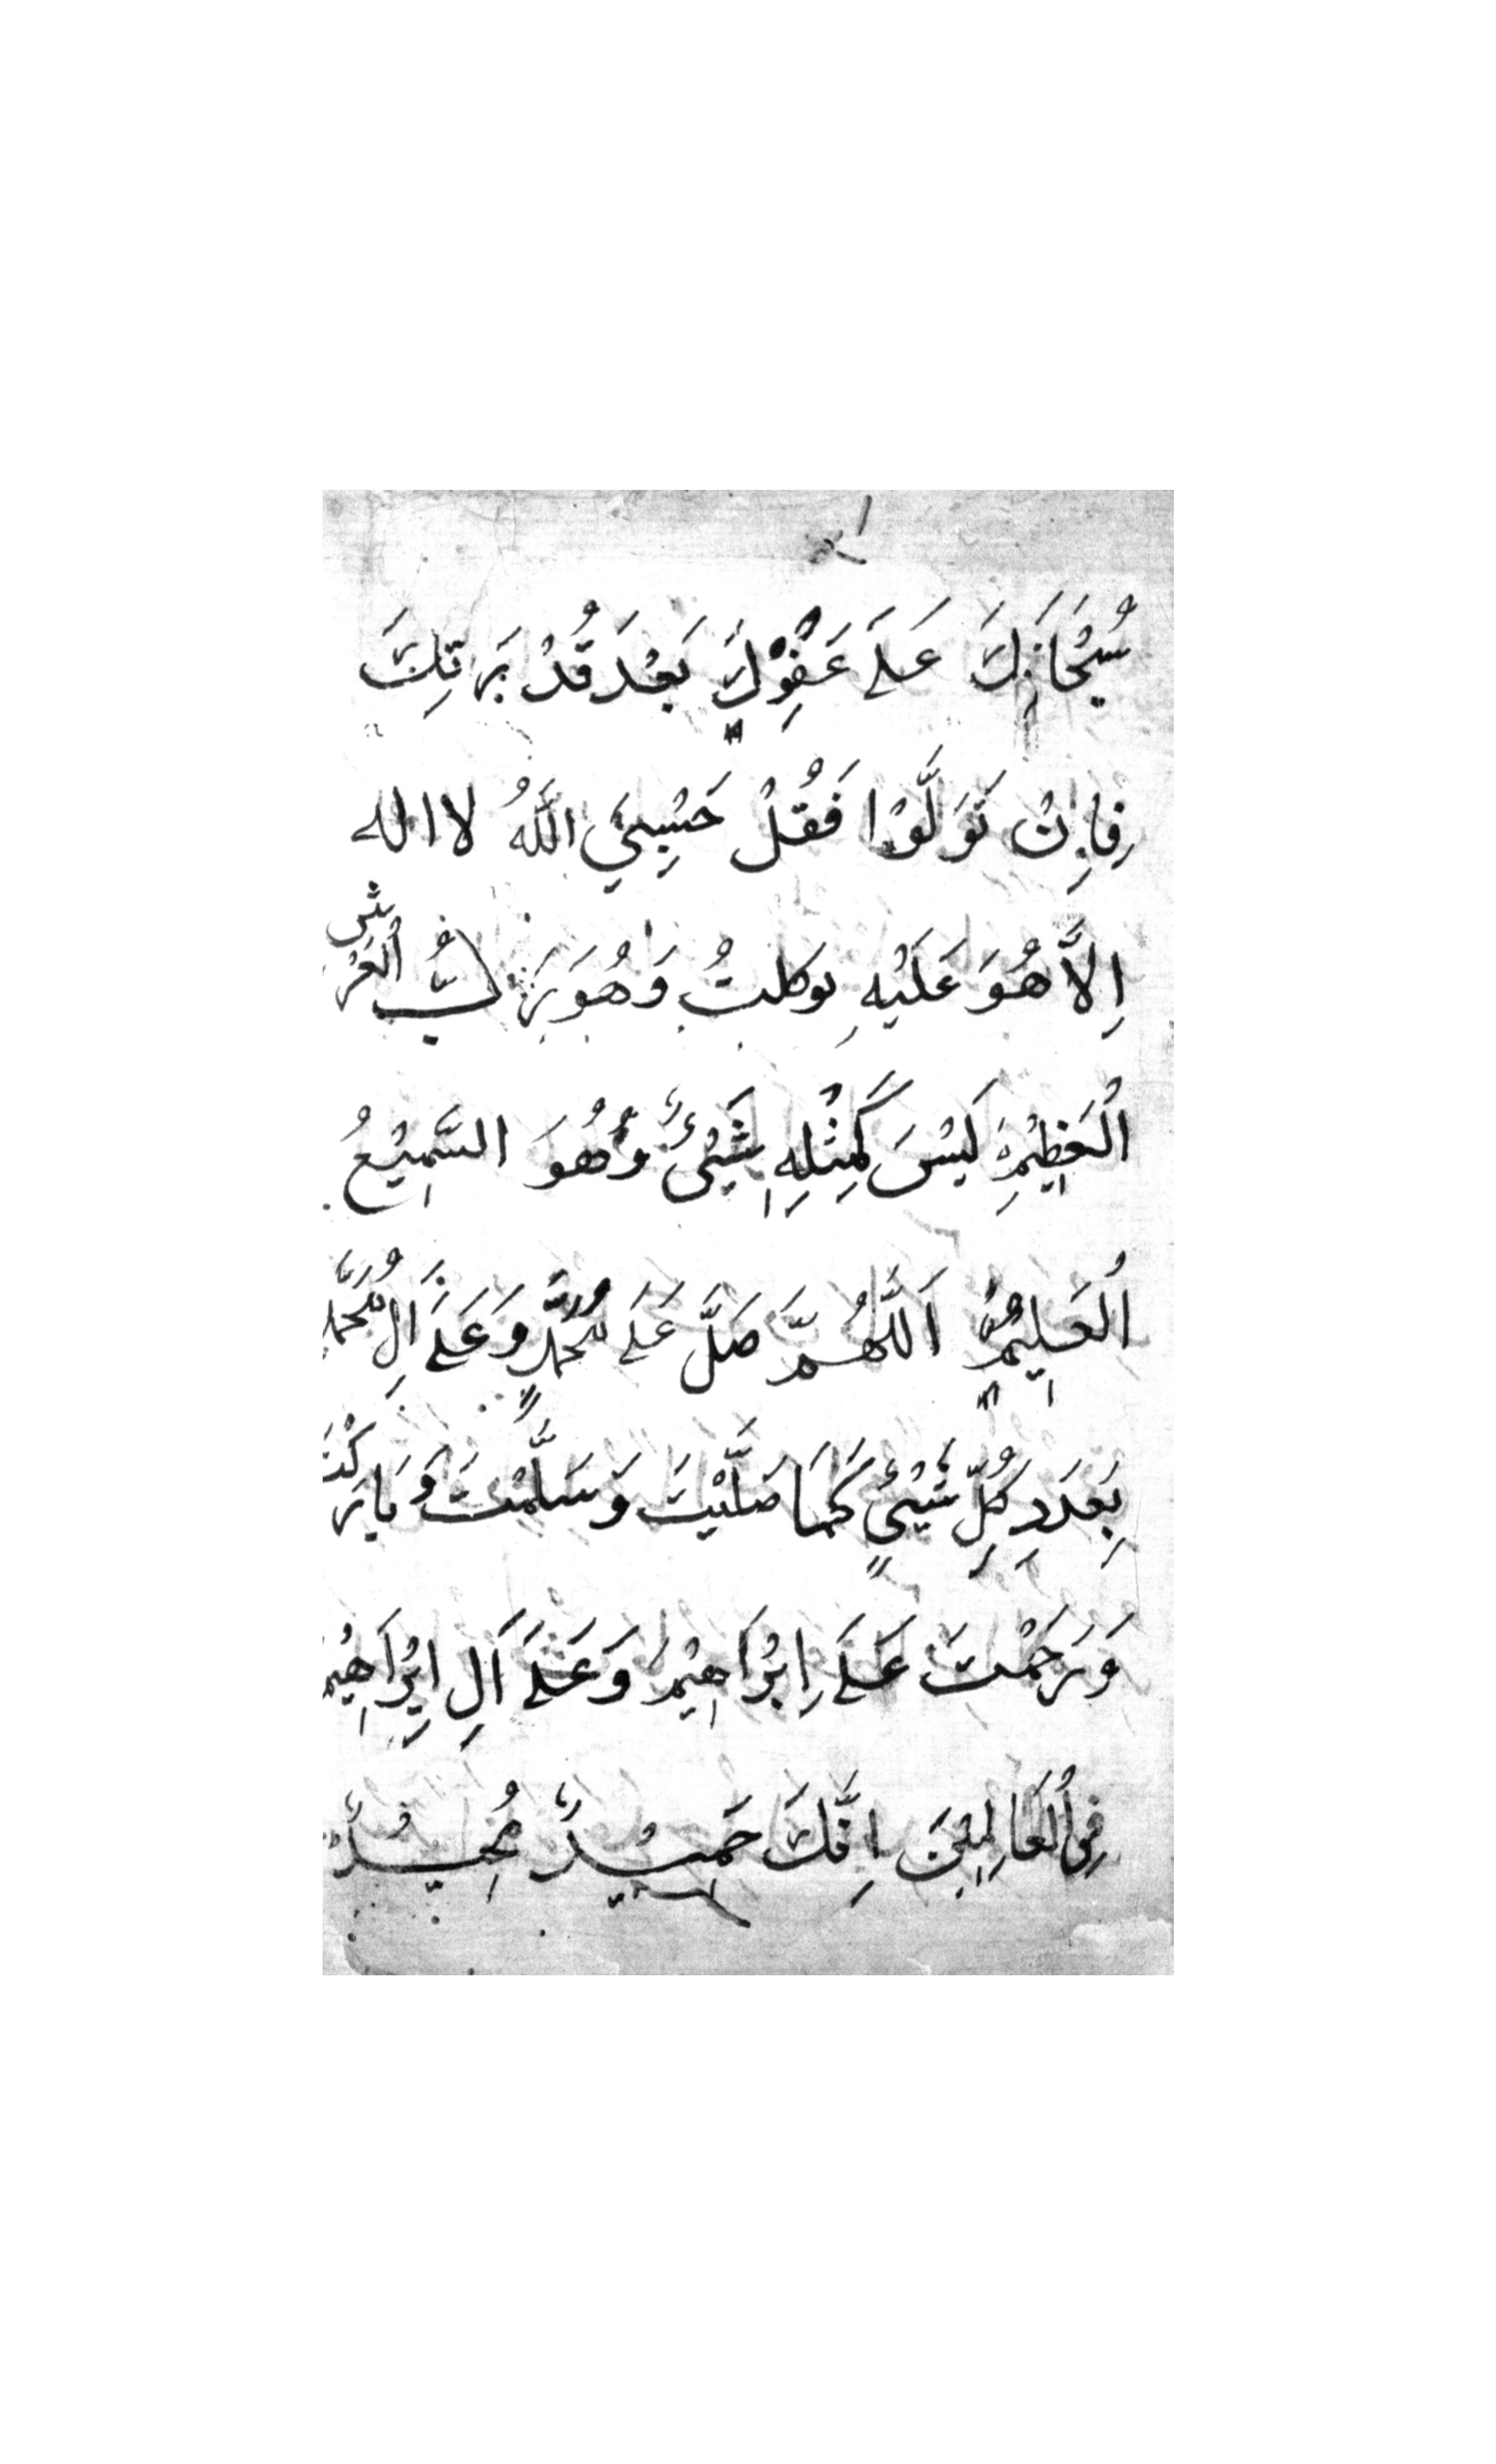 سُبْحَانَكَ عَلَى عَفْوِكَ بَعْدَ قُدْرَتِكَ
فَاِنْ تَوَلَّوْا فَقُلْ حَسْبِيَ اللّٰهُ لا اله
اِلَّا هُوَ عَلَيْهِ توكلتُ وَهُوَ رَبُّ الْعَرْشِ
الْعَظِيْمِ لَيْسَ كَمِثْلِهِ شَيْئٌ وَهُوَ السَّمِيْعُ
الْعَلِيْمُ اَللّٰهُمَّ صَلَّ عَلَى مُحَمَّدٍ وَعَلَى آلِ مُحَمَّد
بِعَدَدِ كُلِّ شَيْئٍ كَمَا صَلَّيْتَ وَسَلَّمْتَ وَبَارَكْتَ
وَرَحَمْتَ عَلَى اِبْرَاهِيْمَ وَعَلَى آلِ اِبْرَاهِيْم
فِى الْعَالَمِيْنَ اِنَّكَ حَمِيْدٌ مَجِيْدٌ